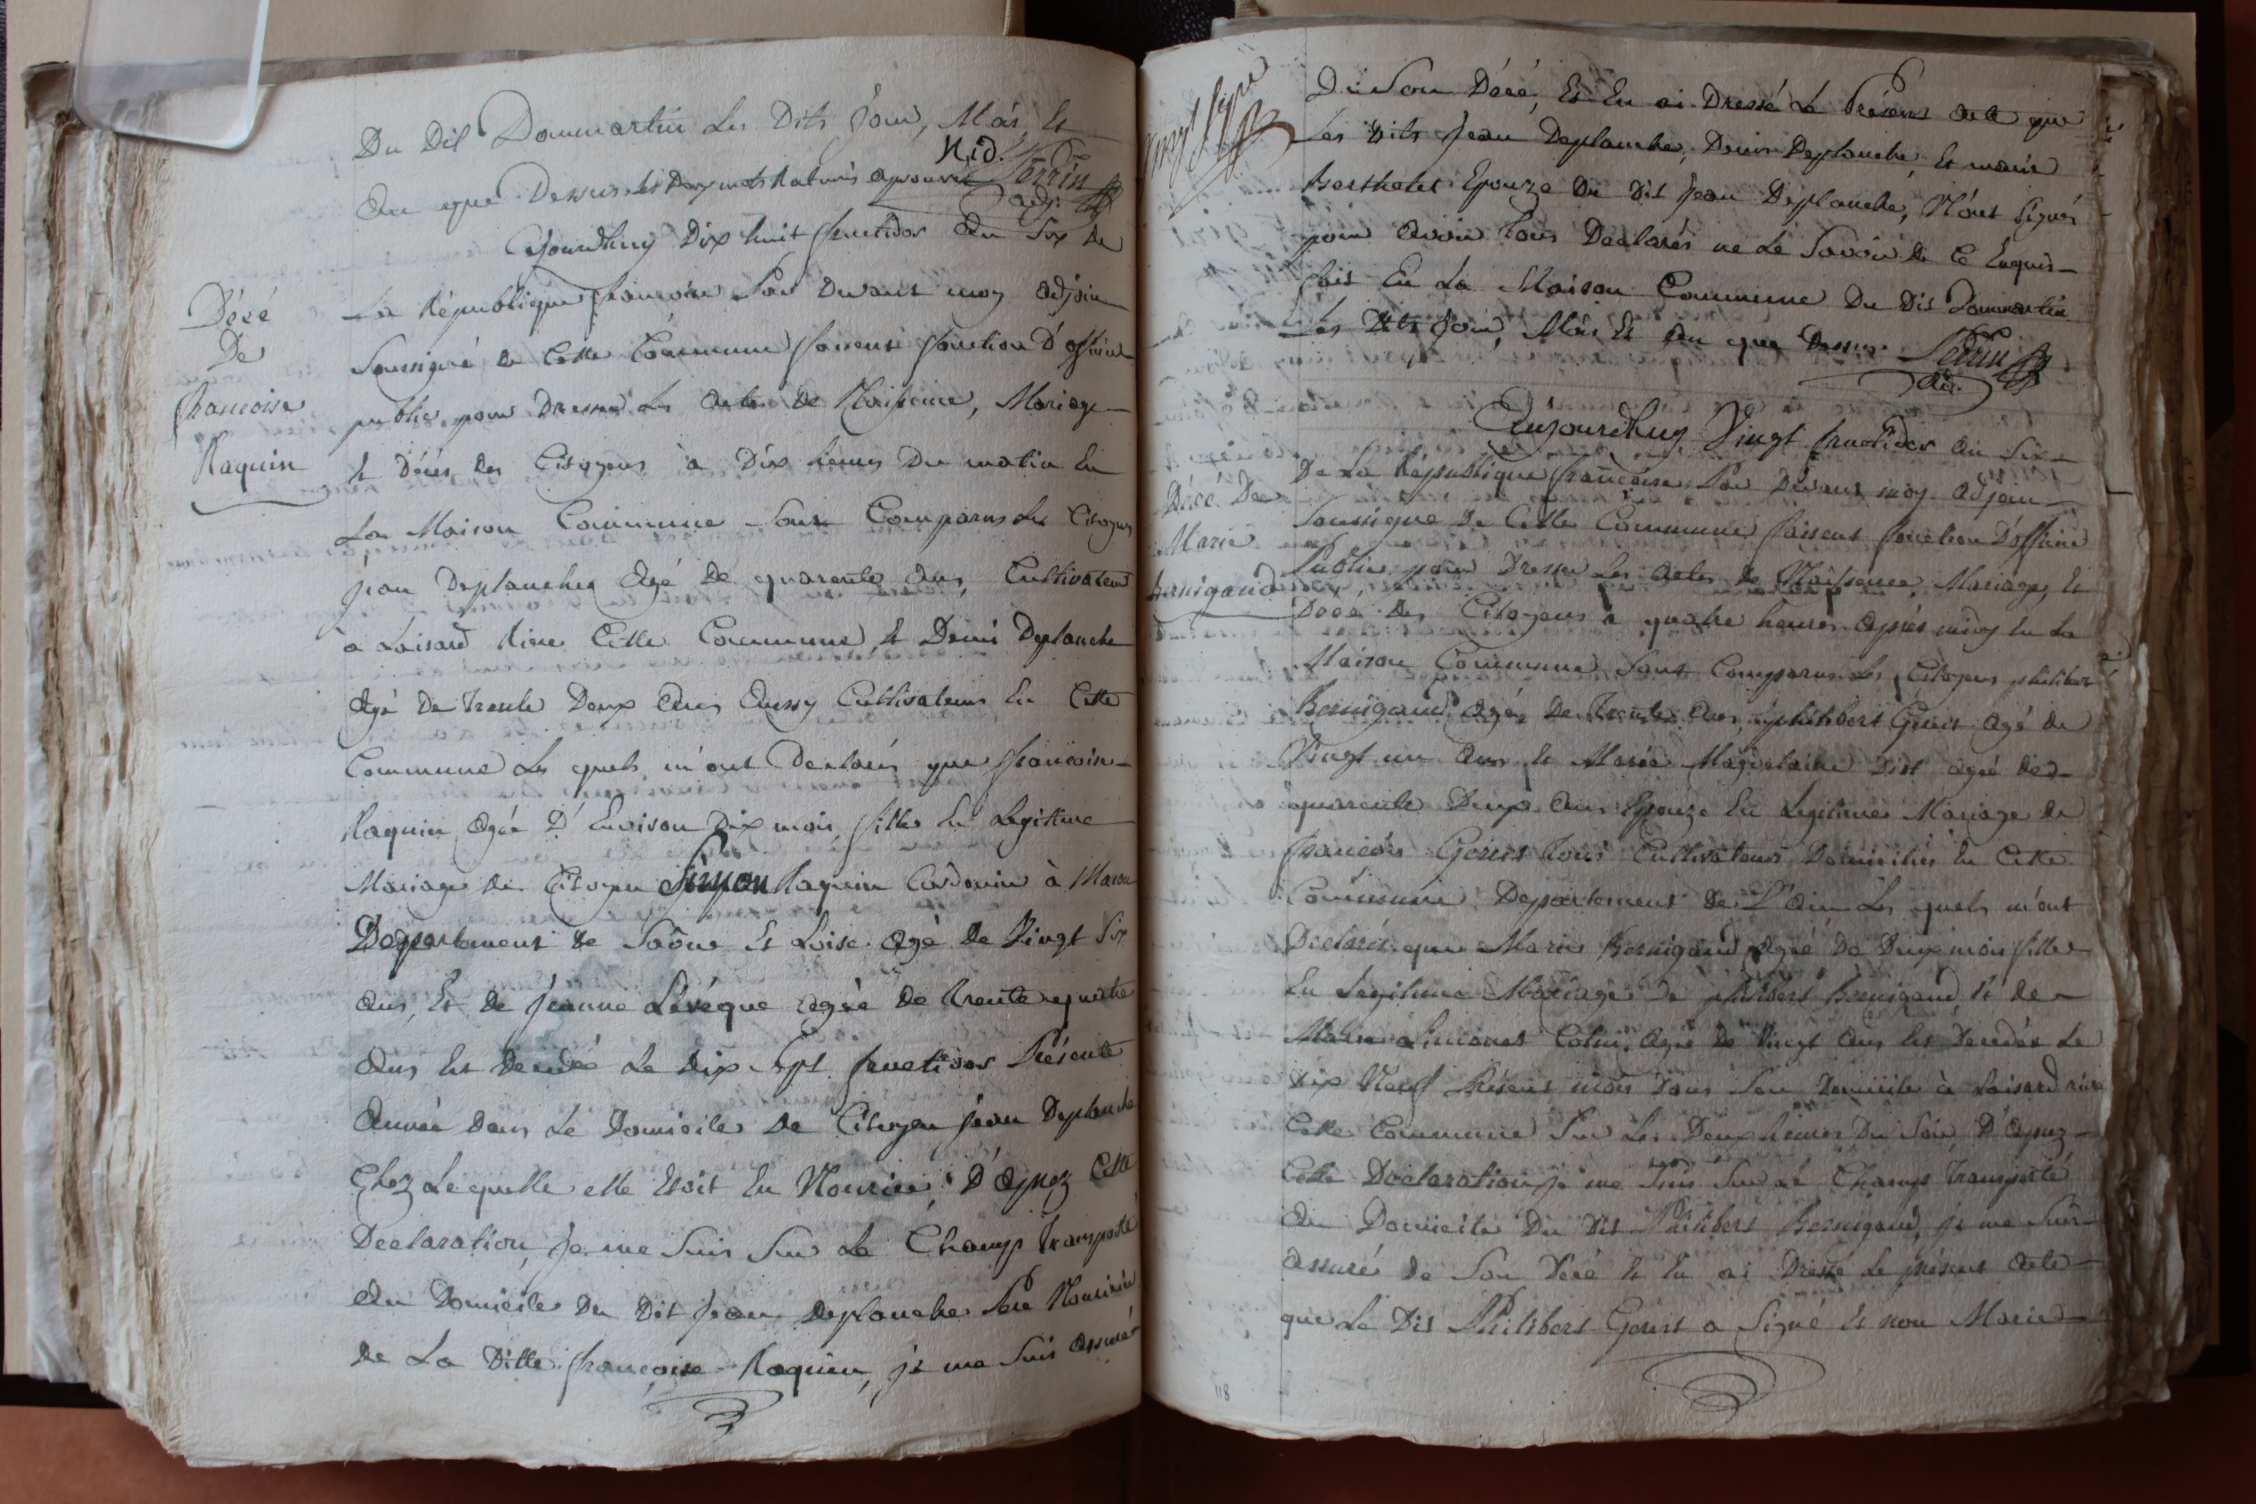 Du Dit Dommartin Les Dits Jour, Mois, Et
An que Dessus les Deux mots Raturés aprouvé Perrin
adj.
Cejourdhuy Dix huit fructidor An Six de
La République françoise Par Devant moy adjoin
Soussigné de Cette Commune faisent fonction D'officier
public pour Dresser Les Actes de Naissence, Mariage
Et Décés des Citoyens à Dix heures Du matin En
La Maison Commune Sont Comparus Les Citoyens
jean Deplanches Agé de quarente Ans, Cultivateur
à Loisard Rière Cette Commune, Et Denis Deplanche
Agé De Trente Deux Ans Aussy Cultivateur En Cette
Commune Les quels m'ont Déclarés que françoise
Raquin Agée D'Environ Dix mois fille En Legittime
Mariage de Citoyen Simon Raquin Cordonnier à Macon
Departement de Saône Et Loire Agé de Vingt Six
Ans, Et de Jeanne Levêque agée De Trente quatre
Ans Est Decedé Le Dix Sept fructidor Présente
Année Dans Le Domicile De Citoyen Jean Deplanche
Chez Lequelle elle Etoit En Nourice, D'Aprez Cette
Declaration, Je me Suis Sur Le Champ Transporté
Au Domicile Du Dit Jean Deplanche Père Nouricier
de La Ditte françoise Raquin, je me Suis assuré
Décé
De
francoise
Raquin
Du Son Décé, Et En ai Dressé Le Présent Acte que
Les Dits Jean Deplanche, Denis Deplanche, Et marie
Berthelet Epouze Du Dit Jean Deplanche, N'ont Signés
pour Avoir Tous Declarés ne Le Savoir De Ce Enquis
fait En La Maison Commune Du Dit Dommartin
Les Dits Jour, Mois Et An que Dessus Perrin
adj.
Aujourdhuy Vingt fructidor An Six
De La République françoise Par Devant moy adjoin
Soussigné De Cette Commune faisent fonction D'officier
Public pour Dresser Les Actes de Naissence, Mariage, Et
Décé des Citoyens à quatre heures Après midy En La
Maison Commune Sont Comparus Les Citoyens philibert
Bernigaud Agé De Trente Ans, philibert Genet Agé de
Vingt un Ans Et Marie Magdelaine Agé De
quarente Deux Ans Epouze En Legitime Mariage De
francois Genet Tous Cultivateurs Domiciliés En Cette
Commune Departement de L'Ain Les quels m'ont
Declarés que Marie Bernigaud Agée De Deux mois fille
En Legitime Mariage de philibert Bernigaud Et de
Marie Colin Agée De Vingt Ans Est Decedée Le
Dix Neuf Présent mois Dans Son Domicile à Loisard rière
Cette Commune Sur Les Deux heures Du Soir D'Aprez
Cette Declaration je me Suis Sur Le Champ Transporté
Au Domicile Du Dit Philibert Bernigaud, je me Suis
assuré de Son Décé Et En ai Dressé Le présent Acte
que Le Dit Philibert Genet a Signé Et non Marie
Décé De
Marie
Bernigaud
118